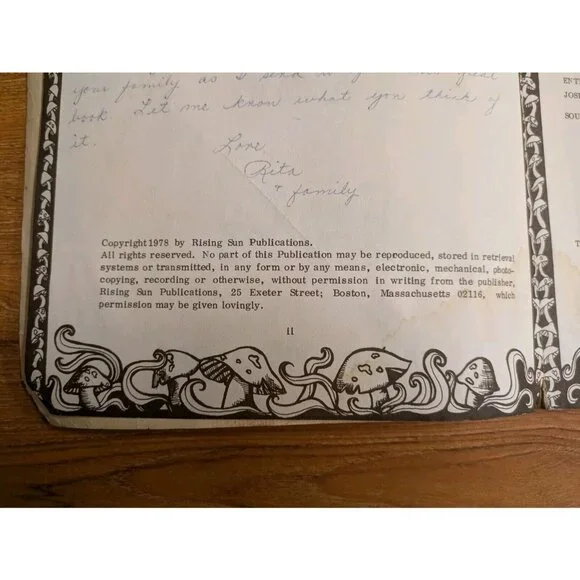 your family as I send
book. Let me know what you think of
it.
Love,
Rita
& family
Copyright 1978 by Rising Sun Publications.
All rights reserved. No part of this Publication may be reproduced, stored in retrieval
systems or transmitted, in any form or by any means, electronic, mechanical, photo-
copying, recording or otherwise, without permission in writing from the publisher,
Rising Sun Publications, 25 Exeter Street; Boston, Massachusetts 02116, which
permission may be given lovingly.
ii
ENT
JOS
SOU
T